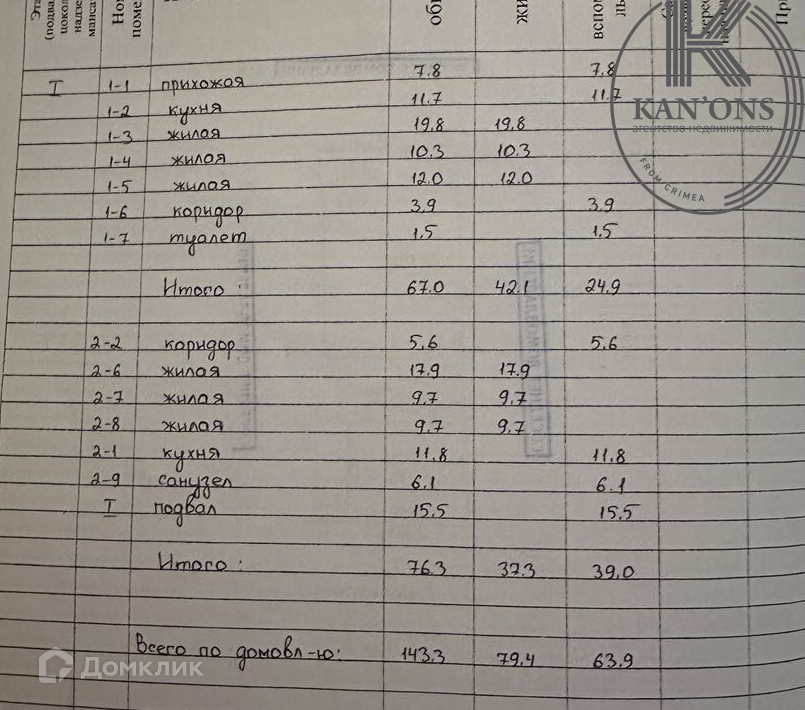 Эта
(подвал
цоколь
надзе
мансар
Ном
поме
общ
жи
вспом
I 1-1 прихожая 7.8 7.8
1-2 кухня 11.7 11.7
1-3 жилая 19.8 19.8
1-4 жилая 10.3 10.3
1-5 жилая 12.0 12.0
1-6 коридор 3.9 3.9
1-7 туалет 1.5 1.5
Итого : 67.0 42.1 24.9
2-2 коридор 5.6 5.6
2-6 жилая 17.9 17.9
2-7 жилая 9.7 9.7
2-8 жилая 9.7 9.7
2-1 кухня 11.8 11.8
2-9 санузел 6.1 6.1
I подвал 15.5 15.5
Итого : 76.3 37.3 39.0
Всего по домовл-ю: 143.3 79.4 63.9
KAN'ONS
агентство недвижимости
FROM CRIMEA
Домклик